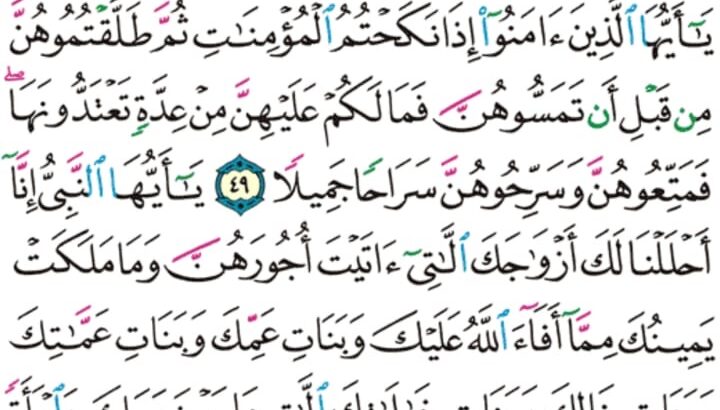 يَـٰٓأَيُّهَا ٱلَّذِينَ ءَامَنُوٓا۟ إِذَا نَكَحْتُمُ ٱلْمُؤْمِنَـٰتِ ثُمَّ طَلَّقْتُمُوهُنَّ
مِن قَبْلِ أَن تَمَسُّوهُنَّ فَمَا لَكُمْ عَلَيْهِنَّ مِنْ عِدَّةٍ تَعْتَدُّونَهَا ۖ
فَمَتِّعُوهُنَّ وَسَرِّحُوهُنَّ سَرَاحًا جَمِيلًا ٤٩ يَـٰٓأَيُّهَا ٱلنَّبِىُّ إِنَّآ
أَحْلَلْنَا لَكَ أَزْوَٰجَكَ ٱلَّـٰتِىٓ ءَاتَيْتَ أُجُورَهُنَّ وَمَا مَلَكَتْ
يَمِينُكَ مِمَّآ أَفَآءَ ٱللَّهُ عَلَيْكَ وَبَنَاتِ عَمِّكَ وَبَنَاتِ عَمَّـٰتِكَ